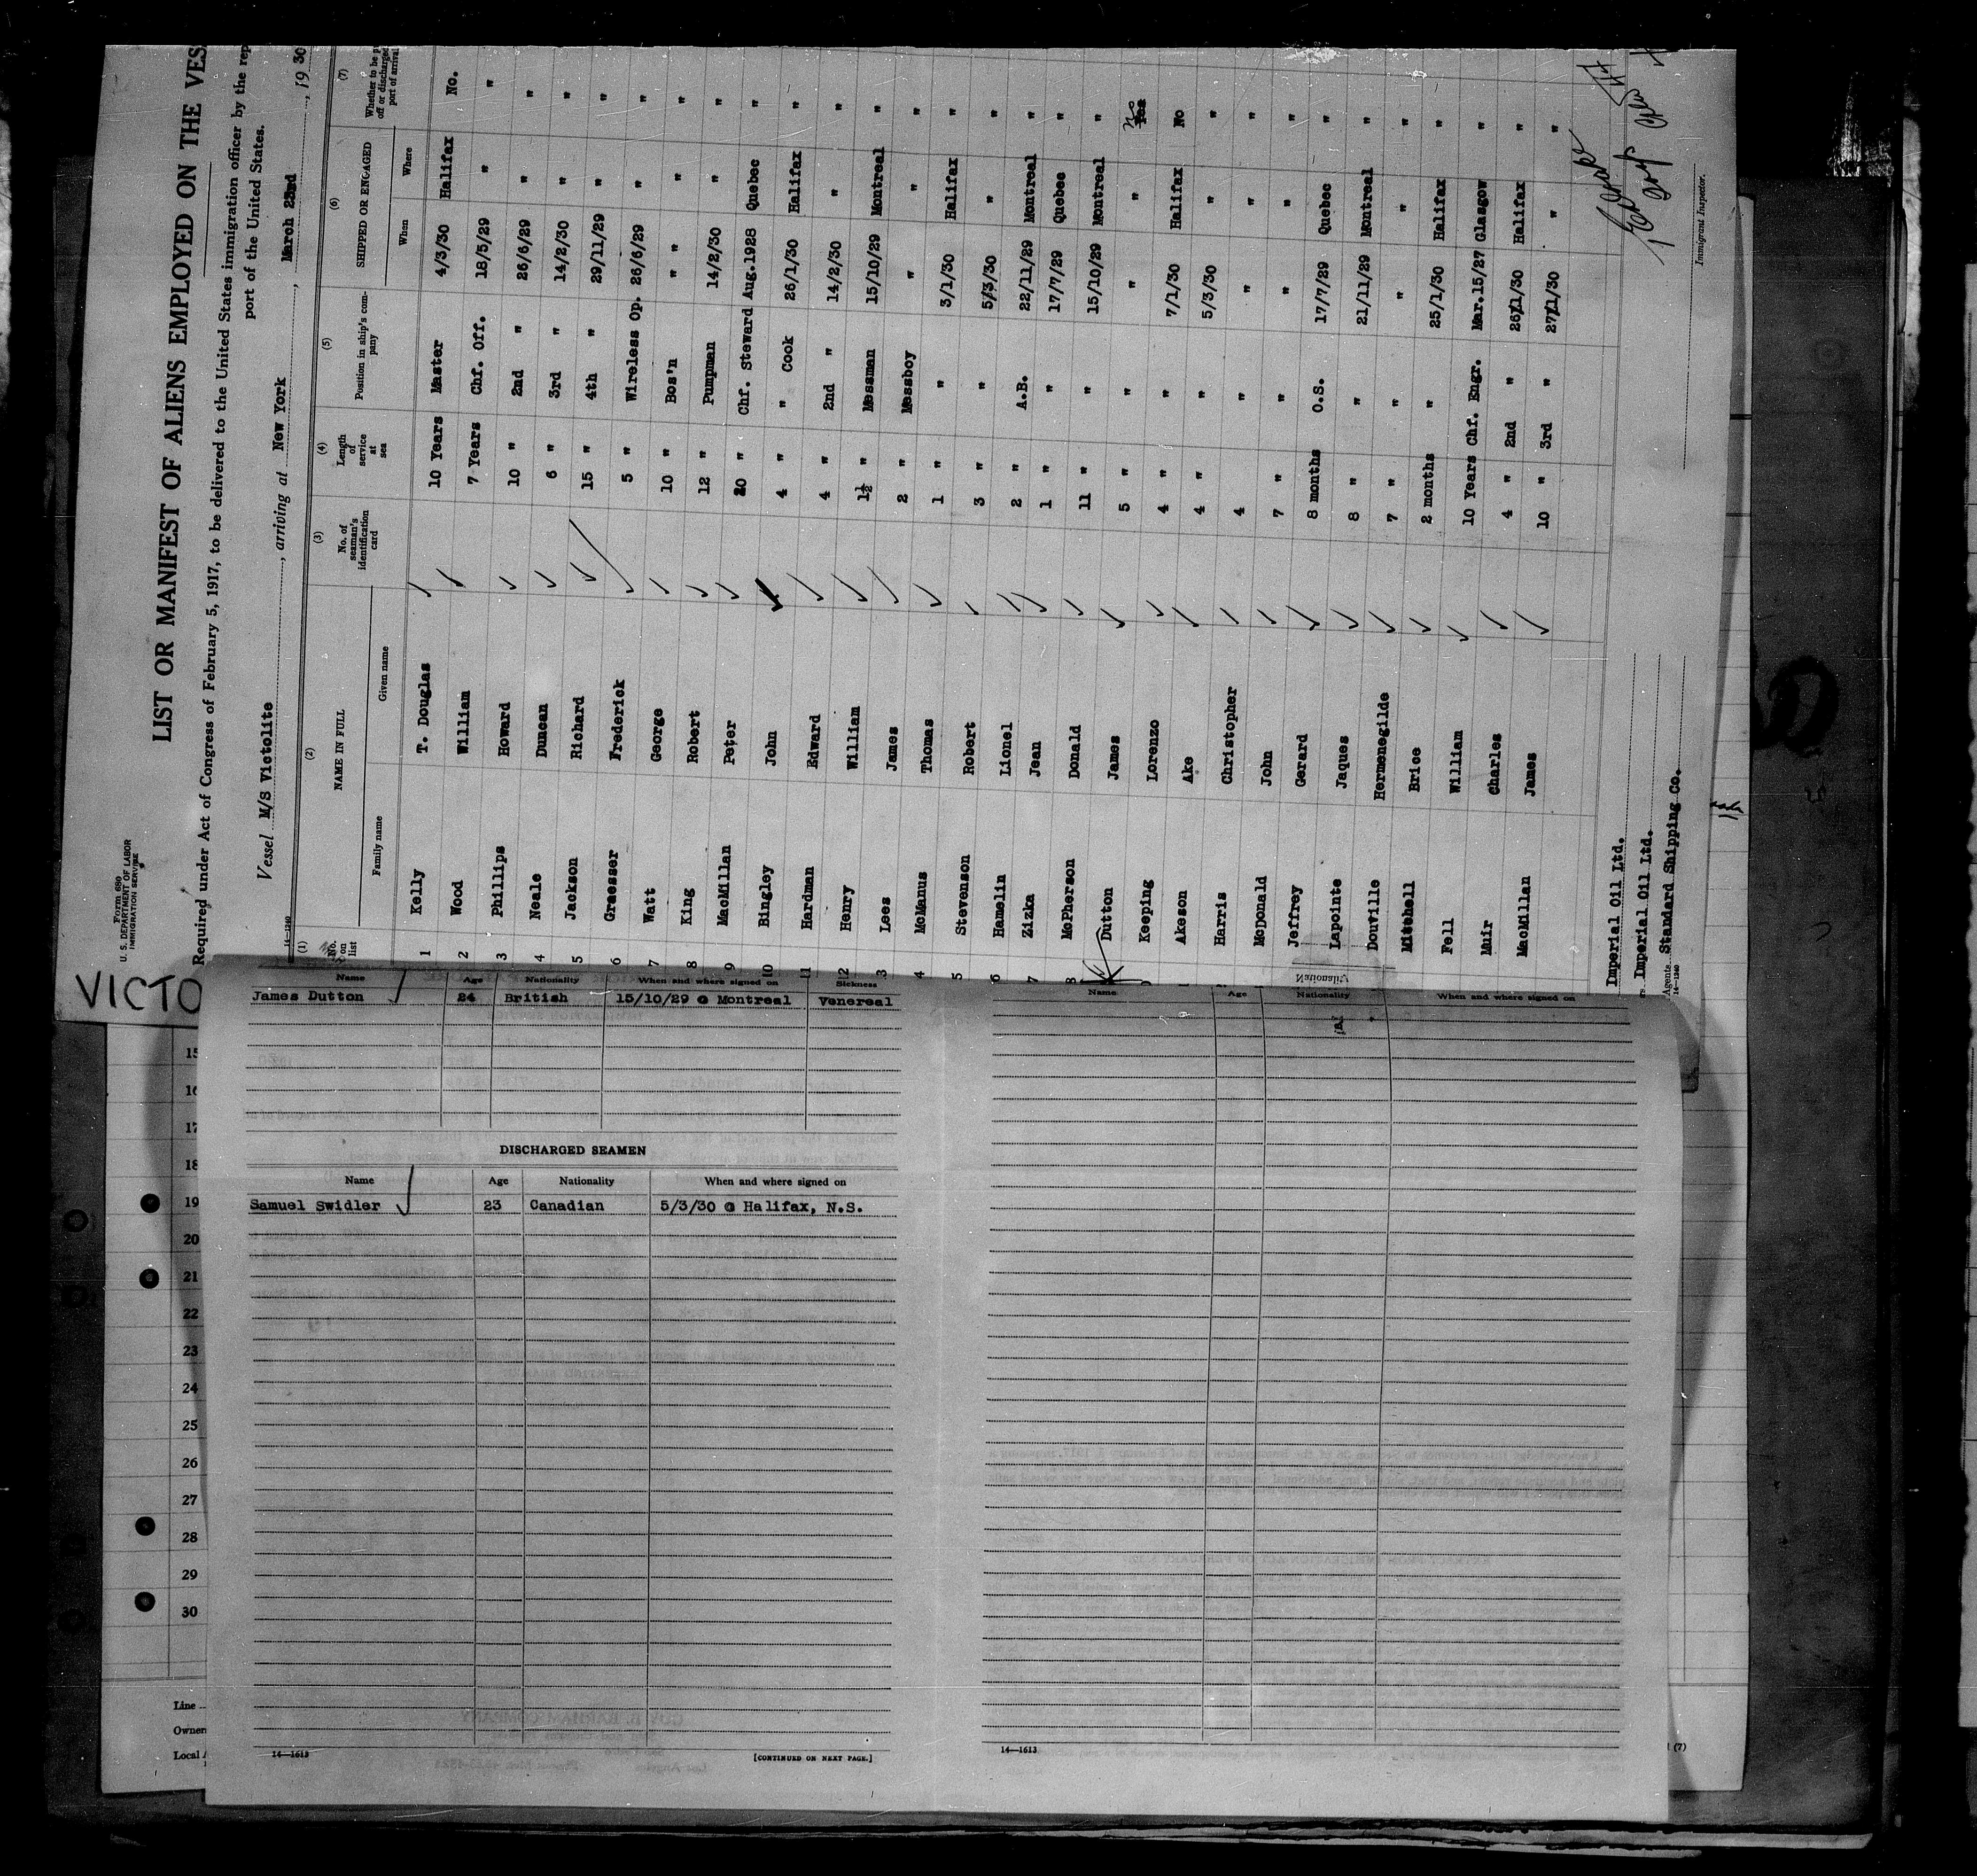 Form 680
U. S. DEPARTMENT OF LABOR
IMMIGRATION SERVICE
LIST OR MANIFEST OF ALIENS EMPLOYED ON THE VES
Required under Act of Congress of February 5, 1917, to be delivered to the United States immigration officer by the rep
port of the United States.
Vessel M/S Victolite, arriving at New York, March 22nd, 1930
14—1240
(1) (2) (3) (4) (5) (6) (7)
No. on list NAME IN FULL No. of seaman's identification card Length of service at sea Position in ship's company SHIPPED OR ENGAGED Whether to be p off or discharged port of arrival
Family name Given name When Where
1 Kelly T. Douglas 10 Years Master 4/3/30 Halifax No.
2 Wood William 7 Years Chf. Off. 18/5/29 " "
3 Phillips Howard 10 " 2nd " 26/6/29 " "
4 Neale Duncan 6 " 3rd " 14/2/30 " "
5 Jackson Richard 15 " 4th " 29/11/29 " "
6 Graesser Frederick 5 " Wireless Op. 26/6/29 " "
7 Watt George 10 " Bos'n " " " "
8 King Robert 12 " Pumpman 14/2/30 " "
9 MacMillan Peter 20 " Chf. Steward Aug.1928 Quebec "
10 Bingley John 4 " " Cook 26/1/30 Halifax "
11 Hardman Edward 4 " 2nd " 14/2/30 " "
12 Henry William 1½ " Messman 15/10/29 Montreal "
3 Lees James 2 " Messboy " " "
4 McManus Thomas 1 " " 3/1/30 Halifax "
5 Stevenson Robert 3 " " 5/3/30 " "
6 Hamelin Lionel 2 " A.B. 22/11/29 Montreal "
7 Zizka Jean 1 " " 17/7/29 Quebec "
8 McPherson Donald 11 " " 15/10/29 Montreal "
Dutton James 5 " " " " No Yes
Keeping Lorenzo 4 " " 7/1/30 Halifax No
Akeson Ake 4 " " 5/3/30 " "
Harris Christopher 4 " " " "
McDonald John 7 " " " " "
Jeffrey Gerard 8 months O.S. 17/7/29 Quebec "
Lapointe Jaques 8 " " 21/11/29 Montreal "
Douville Hermenegilde 7 " " " " "
Mitchell Brice 2 months " 25/1/30 Halifax "
Fell William 10 Years Chf. Engr. Mar.15/27 Glasgow "
Muir Charles 4 " 2nd " 26/1/30 Halifax "
MacMillan James 10 " 3rd " 27/1/30 " "
Imperial Oil Ltd.
rs Imperial Oil Ltd.
Agents Standard Shipping Co.
14—1240
Immigrant Inspector.
VICTO
Name Age Nationality When and where signed on Sickness
James Dutton 24 British 15/10/29 @ Montreal Venereal
DISCHARGED SEAMEN
Name Age Nationality When and where signed on
Samuel Swidler 23 Canadian 5/3/30 @ Halifax, N.S.
14—1613
[CONTINUED ON NEXT PAGE.]
Name Age Nationality When and where signed on
14—1613
15
16
17
18
19
20
21
22
23
24
25
26
27
28
29
30
Line
Owner
Local
(7)